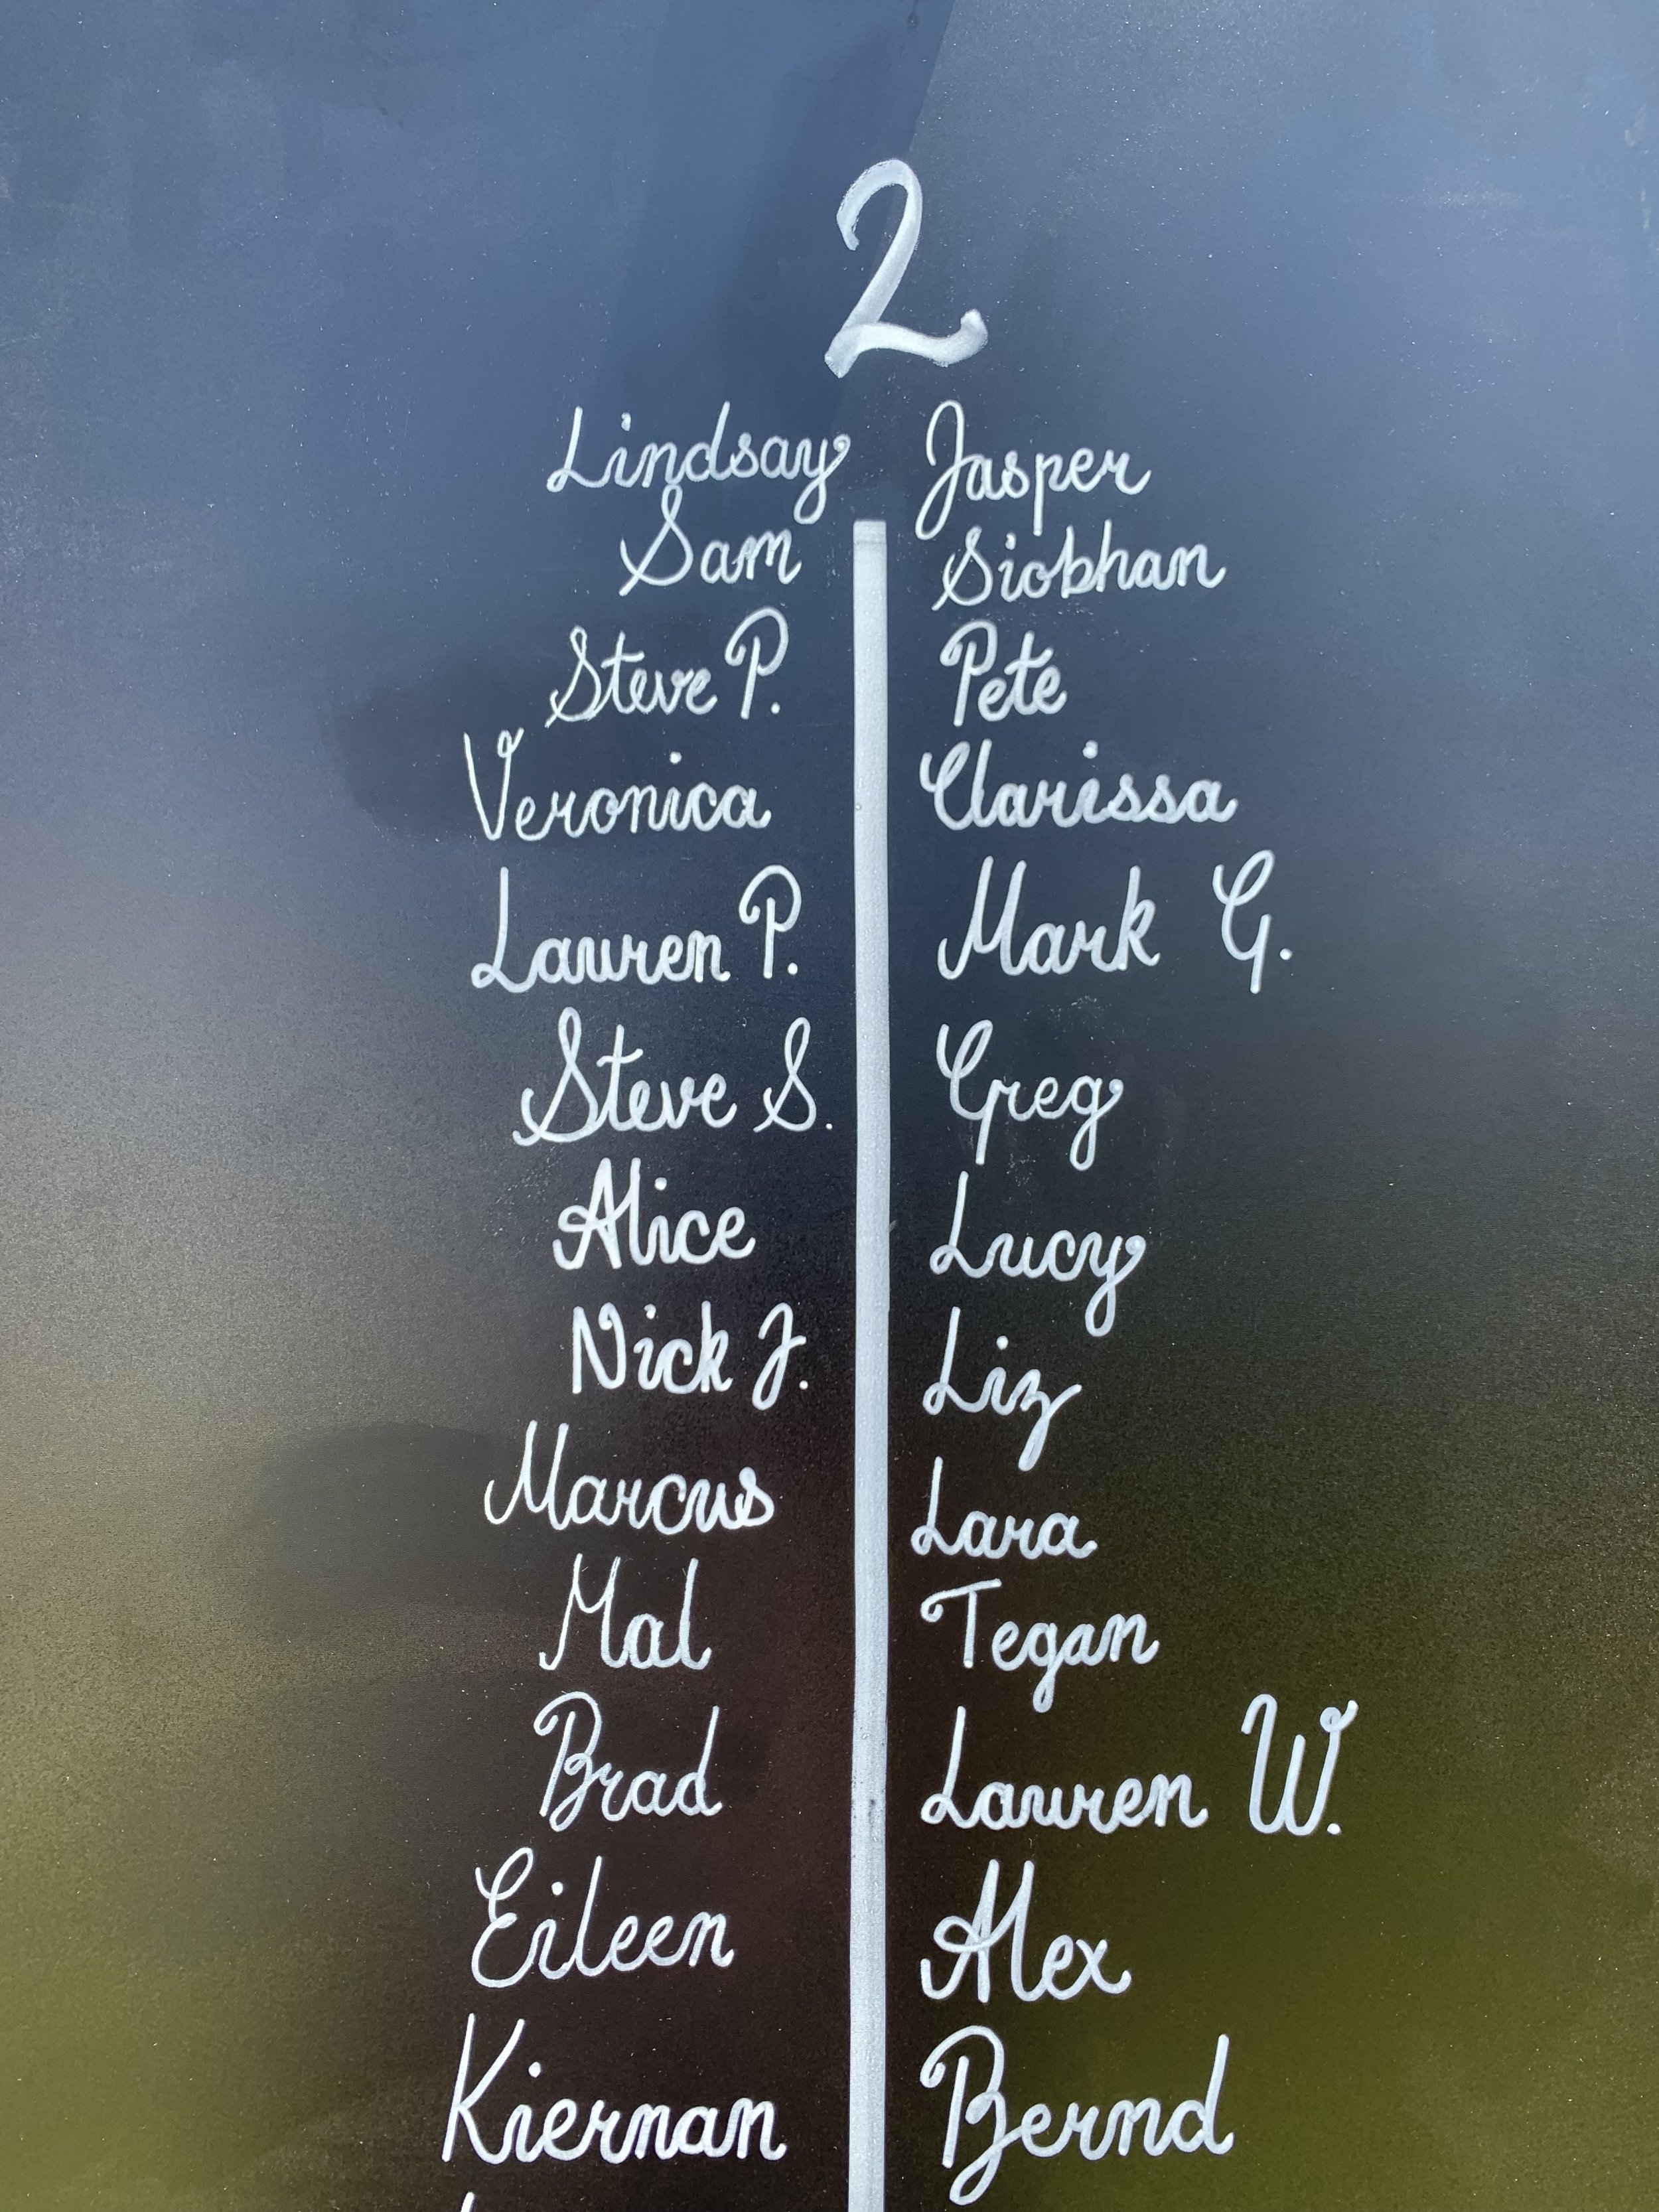 2
Lindsay
Sam
Steve P.
Veronica
Lauren P.
Steve S.
Alice
Nick J.
Marcus
Mal
Brad
Eileen
Kiernan
Jasper
Siobhan
Pete
Clarissa
Mark G.
Greg
Lucy
Liz
Lara
Tegan
Lauren W.
Alex
Bernd